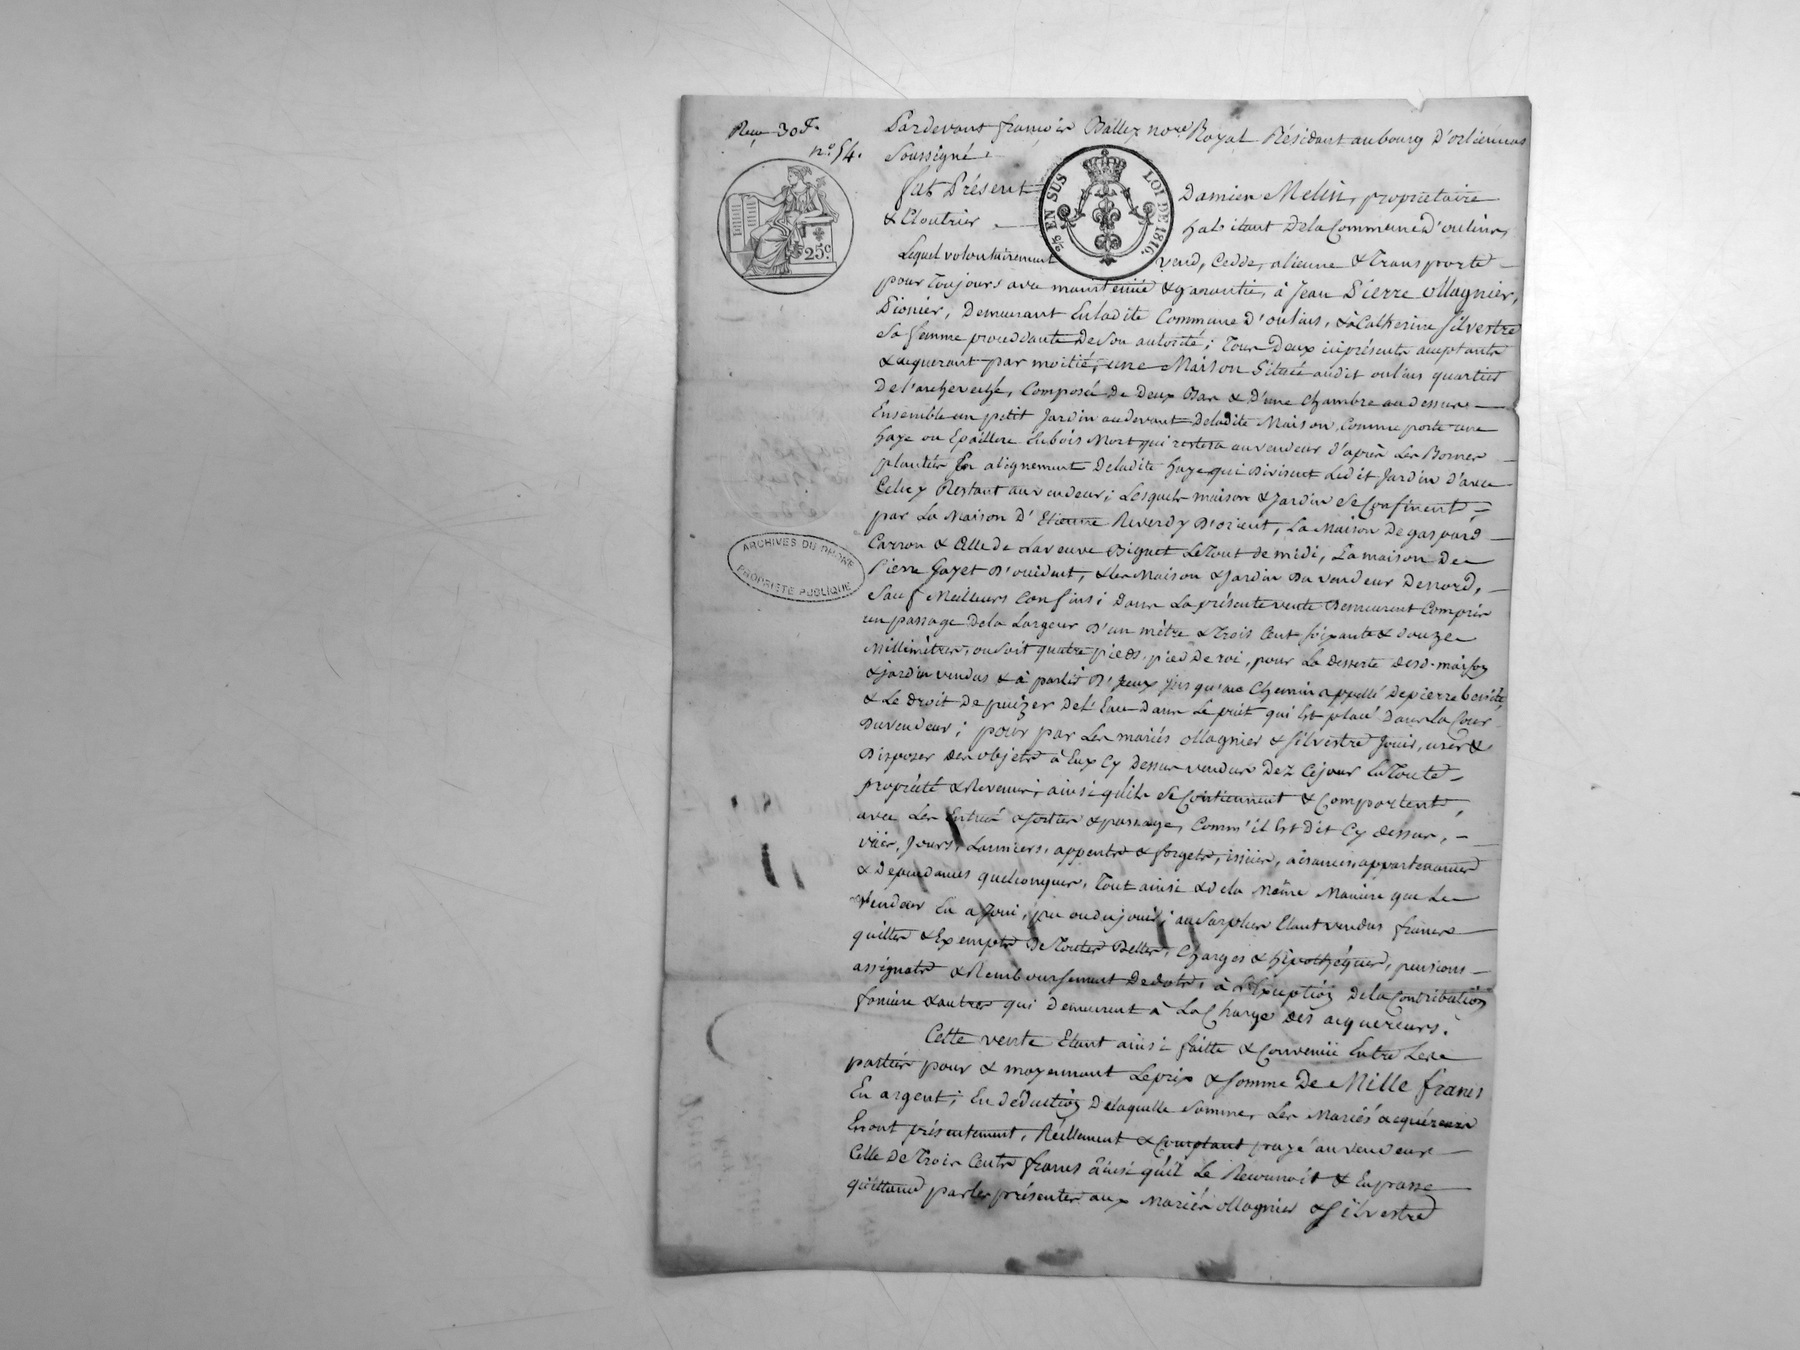 Reçu 30 f.
n.° 54.
25 c.
2/5 EN SUS
LOI DE 1816.
ARCHIVES DU RHONE
PROPRIETE PUBLIQUE
Pardevant françois Ballez no.re Royal Résidant au bourg D'orliennas
Soussigné.
fut Présent Damien Melin, propriétaire
& Cloutrier habitant De la Commune D'oulins,
Lequel volontairement vend, Cedde, alienne & Transporte
pour Toujours avec maintenüe & garantie, à Jean Pierre Ollagnier,
Pionier, Demeurant En ladite Commune D'oulins, & à Catherine Silvestre
Sa femme procédante De Son autorité; Tous Deux ici présents acceptants
& acquerant par moitié, une Maison Située audit oulins quartier
De l'archeveché, Composée De Deux Bas & D'une Chambre au Dessus
Ensemble un petit Jardin au devant De ladite Maison, Comme porte une
haye ou Epaillere En bois Mort qui restera au vendeur d'après Les Bornes
plantées En alignement De ladite haye qui Divisent Ledit Jardin D'avec
Celuy Restant au vendeur; Lesquels maison & Jardin Se Confinent,
par La Maison D'Etienne Reverdy D'orient, La Maison De gaspard
Carron & Celle De La veuve Biguet Le Tout de midi, La maison De
Pierre Jayet D'occident, & les Maison & Jardin Du vendeur De nord,
Sauf Meilleurs Confins; Dans La présente vente Demeurent Compris
un passage De la Largeur D'un mètre & Trois Cent Soixante & Douze
Millimètres, ou Soit quatre pieds, pied De roi, pour La desserte desd. maison
& jardin vendus & à partir D'Jceux jusqu'au Chemin appellé De pierre benite
& Le Droit De puizer De l'Eau Dans Le puit qui Est placé Dans La Cour
Du vendeur; pour par Les mariés Ollagnier & Silvestre Jouir, user &
Disposer Des objets à Eux Cy Dessus vendus Dez Cejour En Toute
propriété & Revenus, ainsi qu'ils Se Contiennent & Comportent,
avec Les Entrées & Sorties & passage, Comm'il Est Dit Cy dessus,
vües, Jours, Larmiers, appents & forgets, issües, aisances, appartenances
& Dépendances quelconques, Tout ainsi & De la Même Manière que Le
Vendeur En a Joui, pu ou du jouir; au Surplus Etant vendus francs
quittes & Exempts De Toutes Dettes, Charges & hipothéques, pensions
assignats & Remboursement De dots, à L'Exception De la Contribution
fonciere & autres qui Demeurent à La Charge Des acquereurs.
Cette vente Etant ainsi faitte & Convenüe Entre Les
parties pour & moyennant Le prix & Somme De Mille francs
En argent; En Déduction De laquelle Somme, Les Mariés acquéreurs
En ont présentement, Réellement & Comptant payé au vendeur
Celle De Trois Cents francs ainsi qu'il Le Reconnoit & En passe
quittance par les présentes aux Mariés Ollagnier & Silvestre